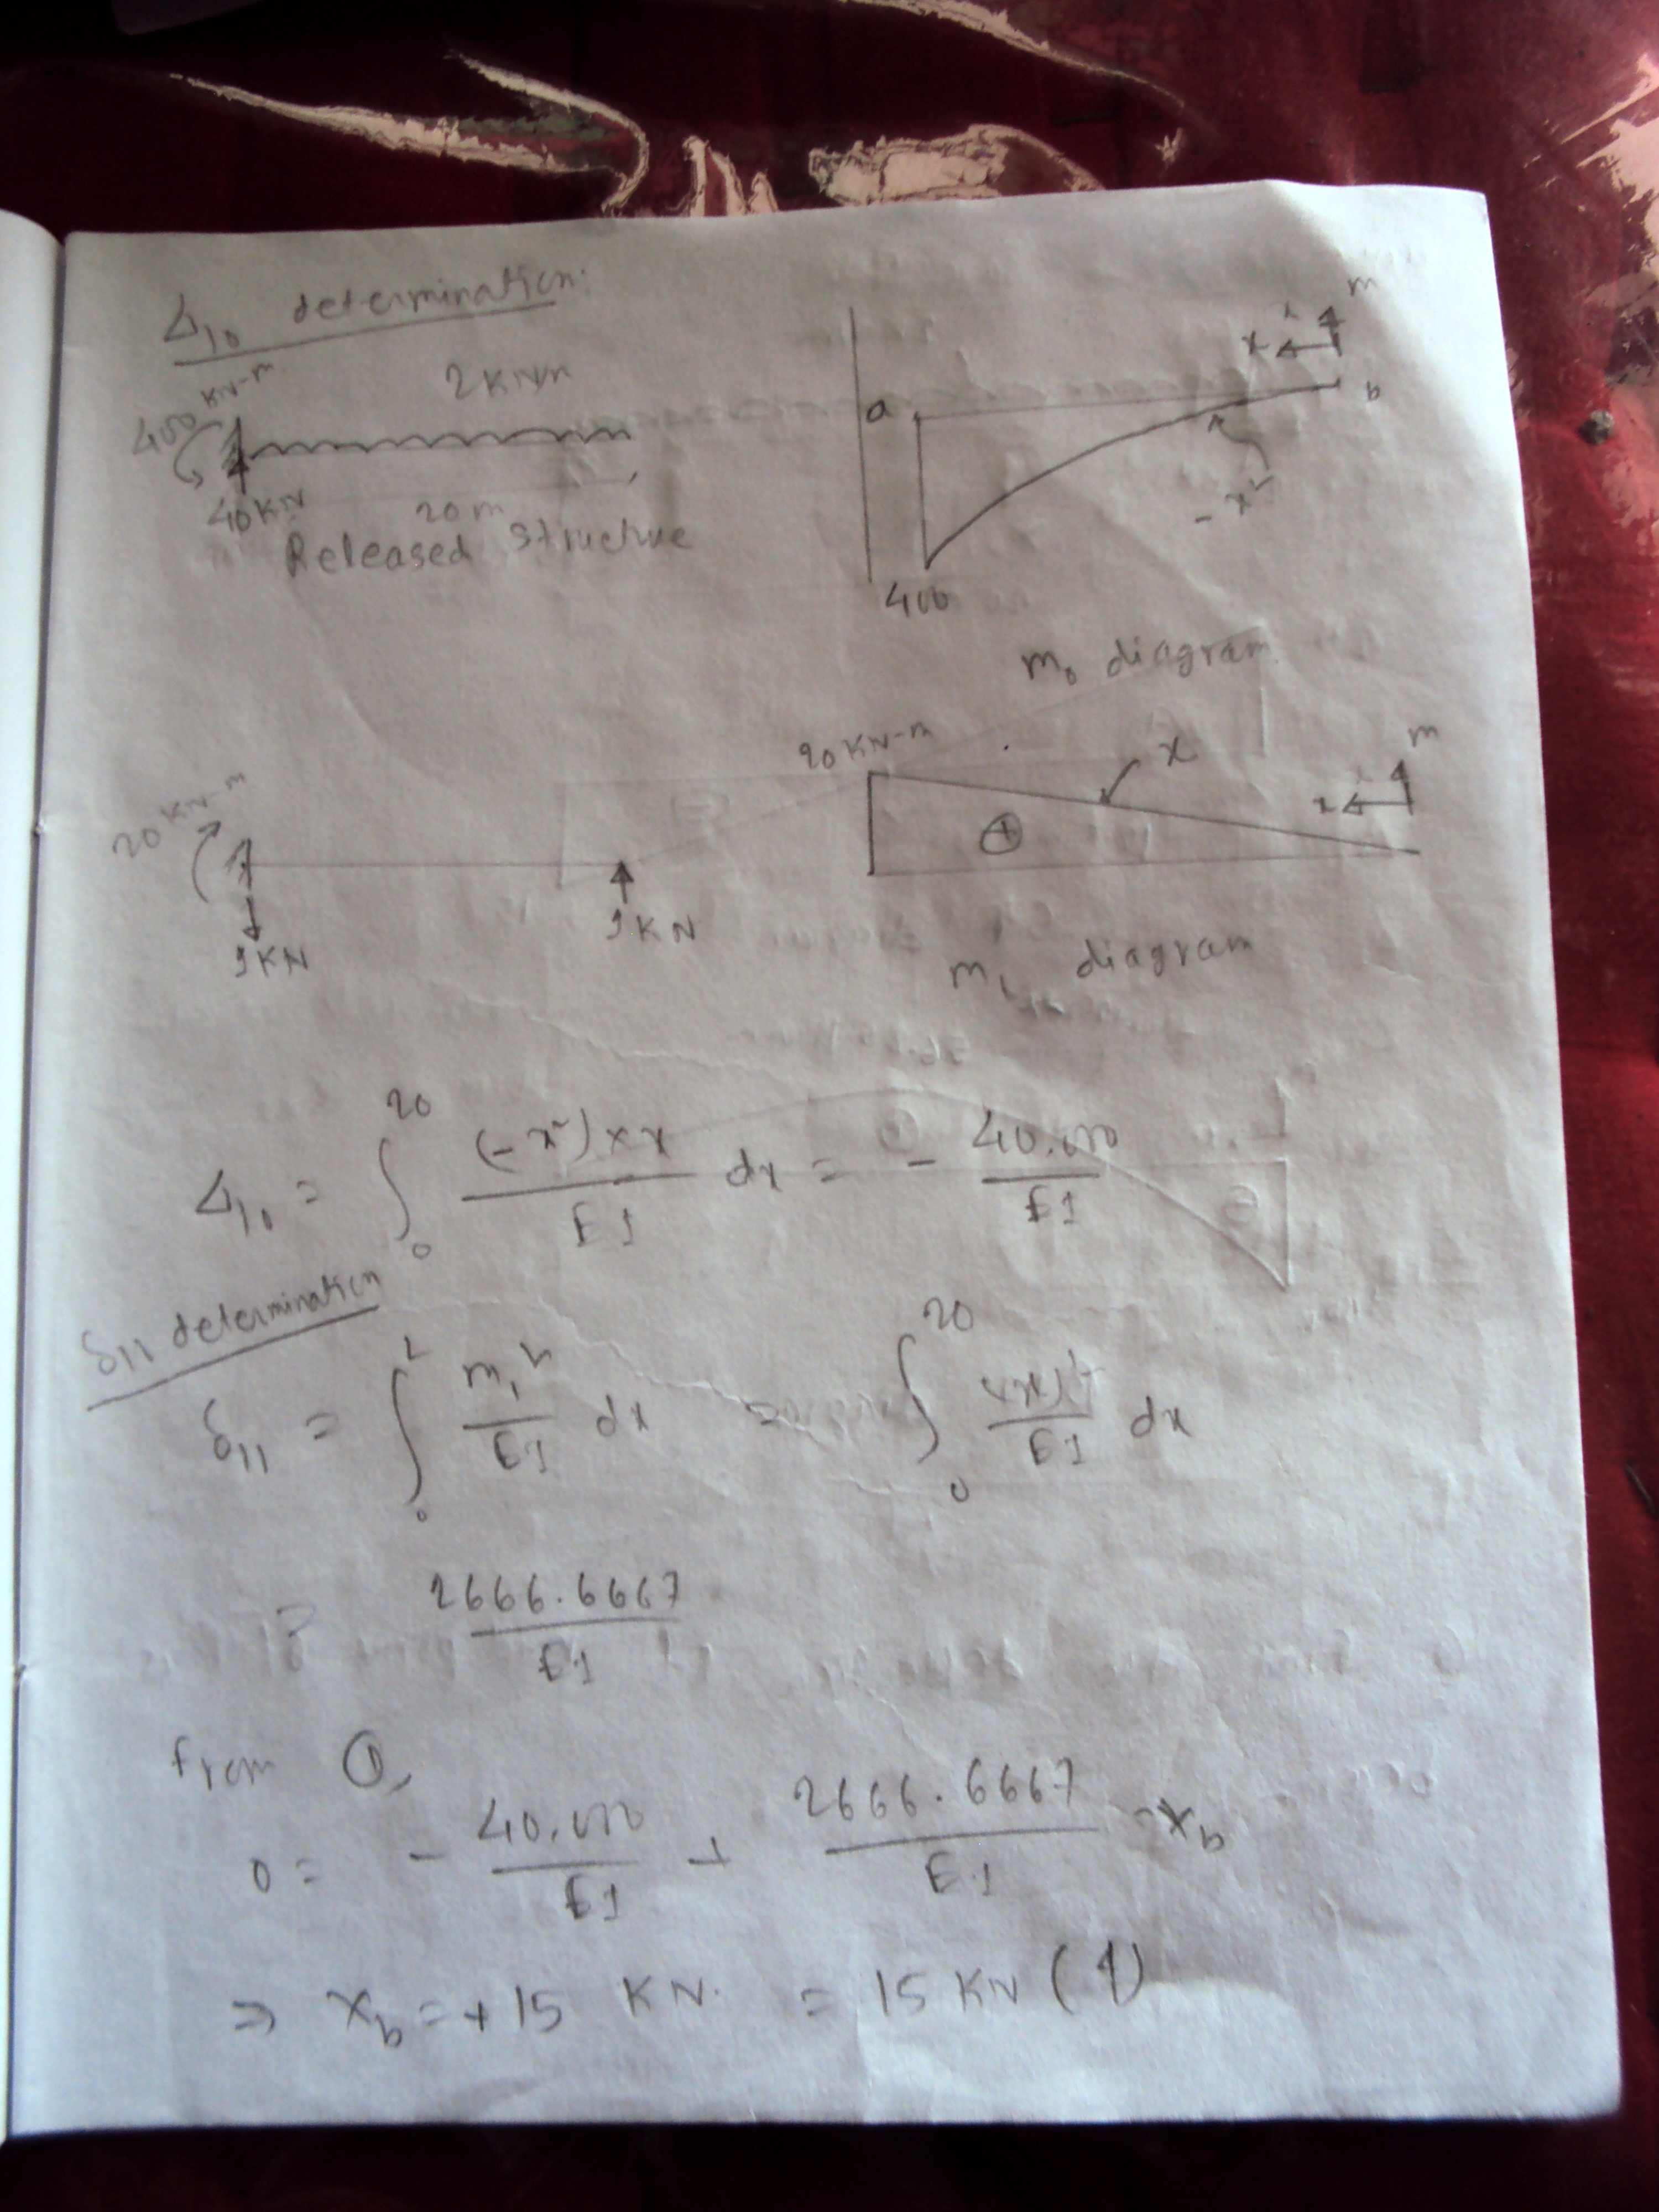 Δ10 determination:
400 KN-m
2 KN/m
40 KN
20 m
Released Structure
a
b
x
m
- x²
400
m0 diagram
20 KN-m
1 KN
1 KN
20 KN-m
x
m
x
m1 diagram
Δ10 = ∫₀²⁰ (-x²) × x / EI dx = - 40,000 / EI
δ11 determination
δ11 = ∫₀ᴸ m1² / EI dx = ∫₀²⁰ (x)² / EI dx
= 2666.6667 / EI
from ①,
0 = - 40,000 / EI + 2666.6667 / EI Xb
⇒ Xb = + 15 KN. = 15 KN (↑)